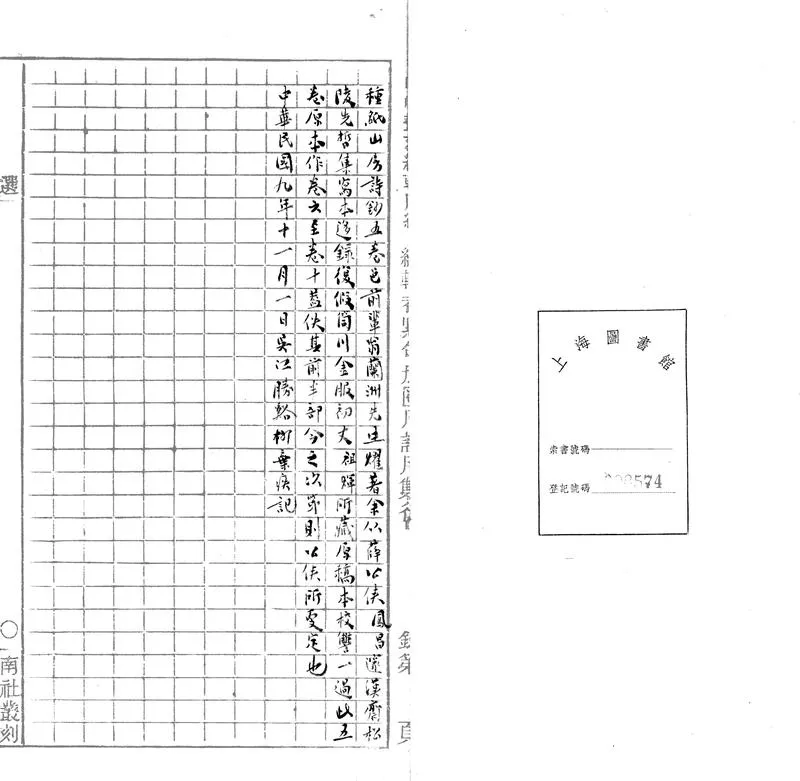 上海圖書館
索書號碼
登記號碼
頁
種紙山房詩鈔五卷邑前輩翁蘭洲先生燿著余以薛公俠鳳昌邃漢齋松
陵先哲集寫本迻錄復假筒川金服初丈祖輝所藏原稿本校讐一過此五
卷原本作卷六至卷十蓋佚其前半部今之次第則公俠所更定也
中華民國九年十一月一日吳江勝谿柳棄疾記
選
〇南社叢刻